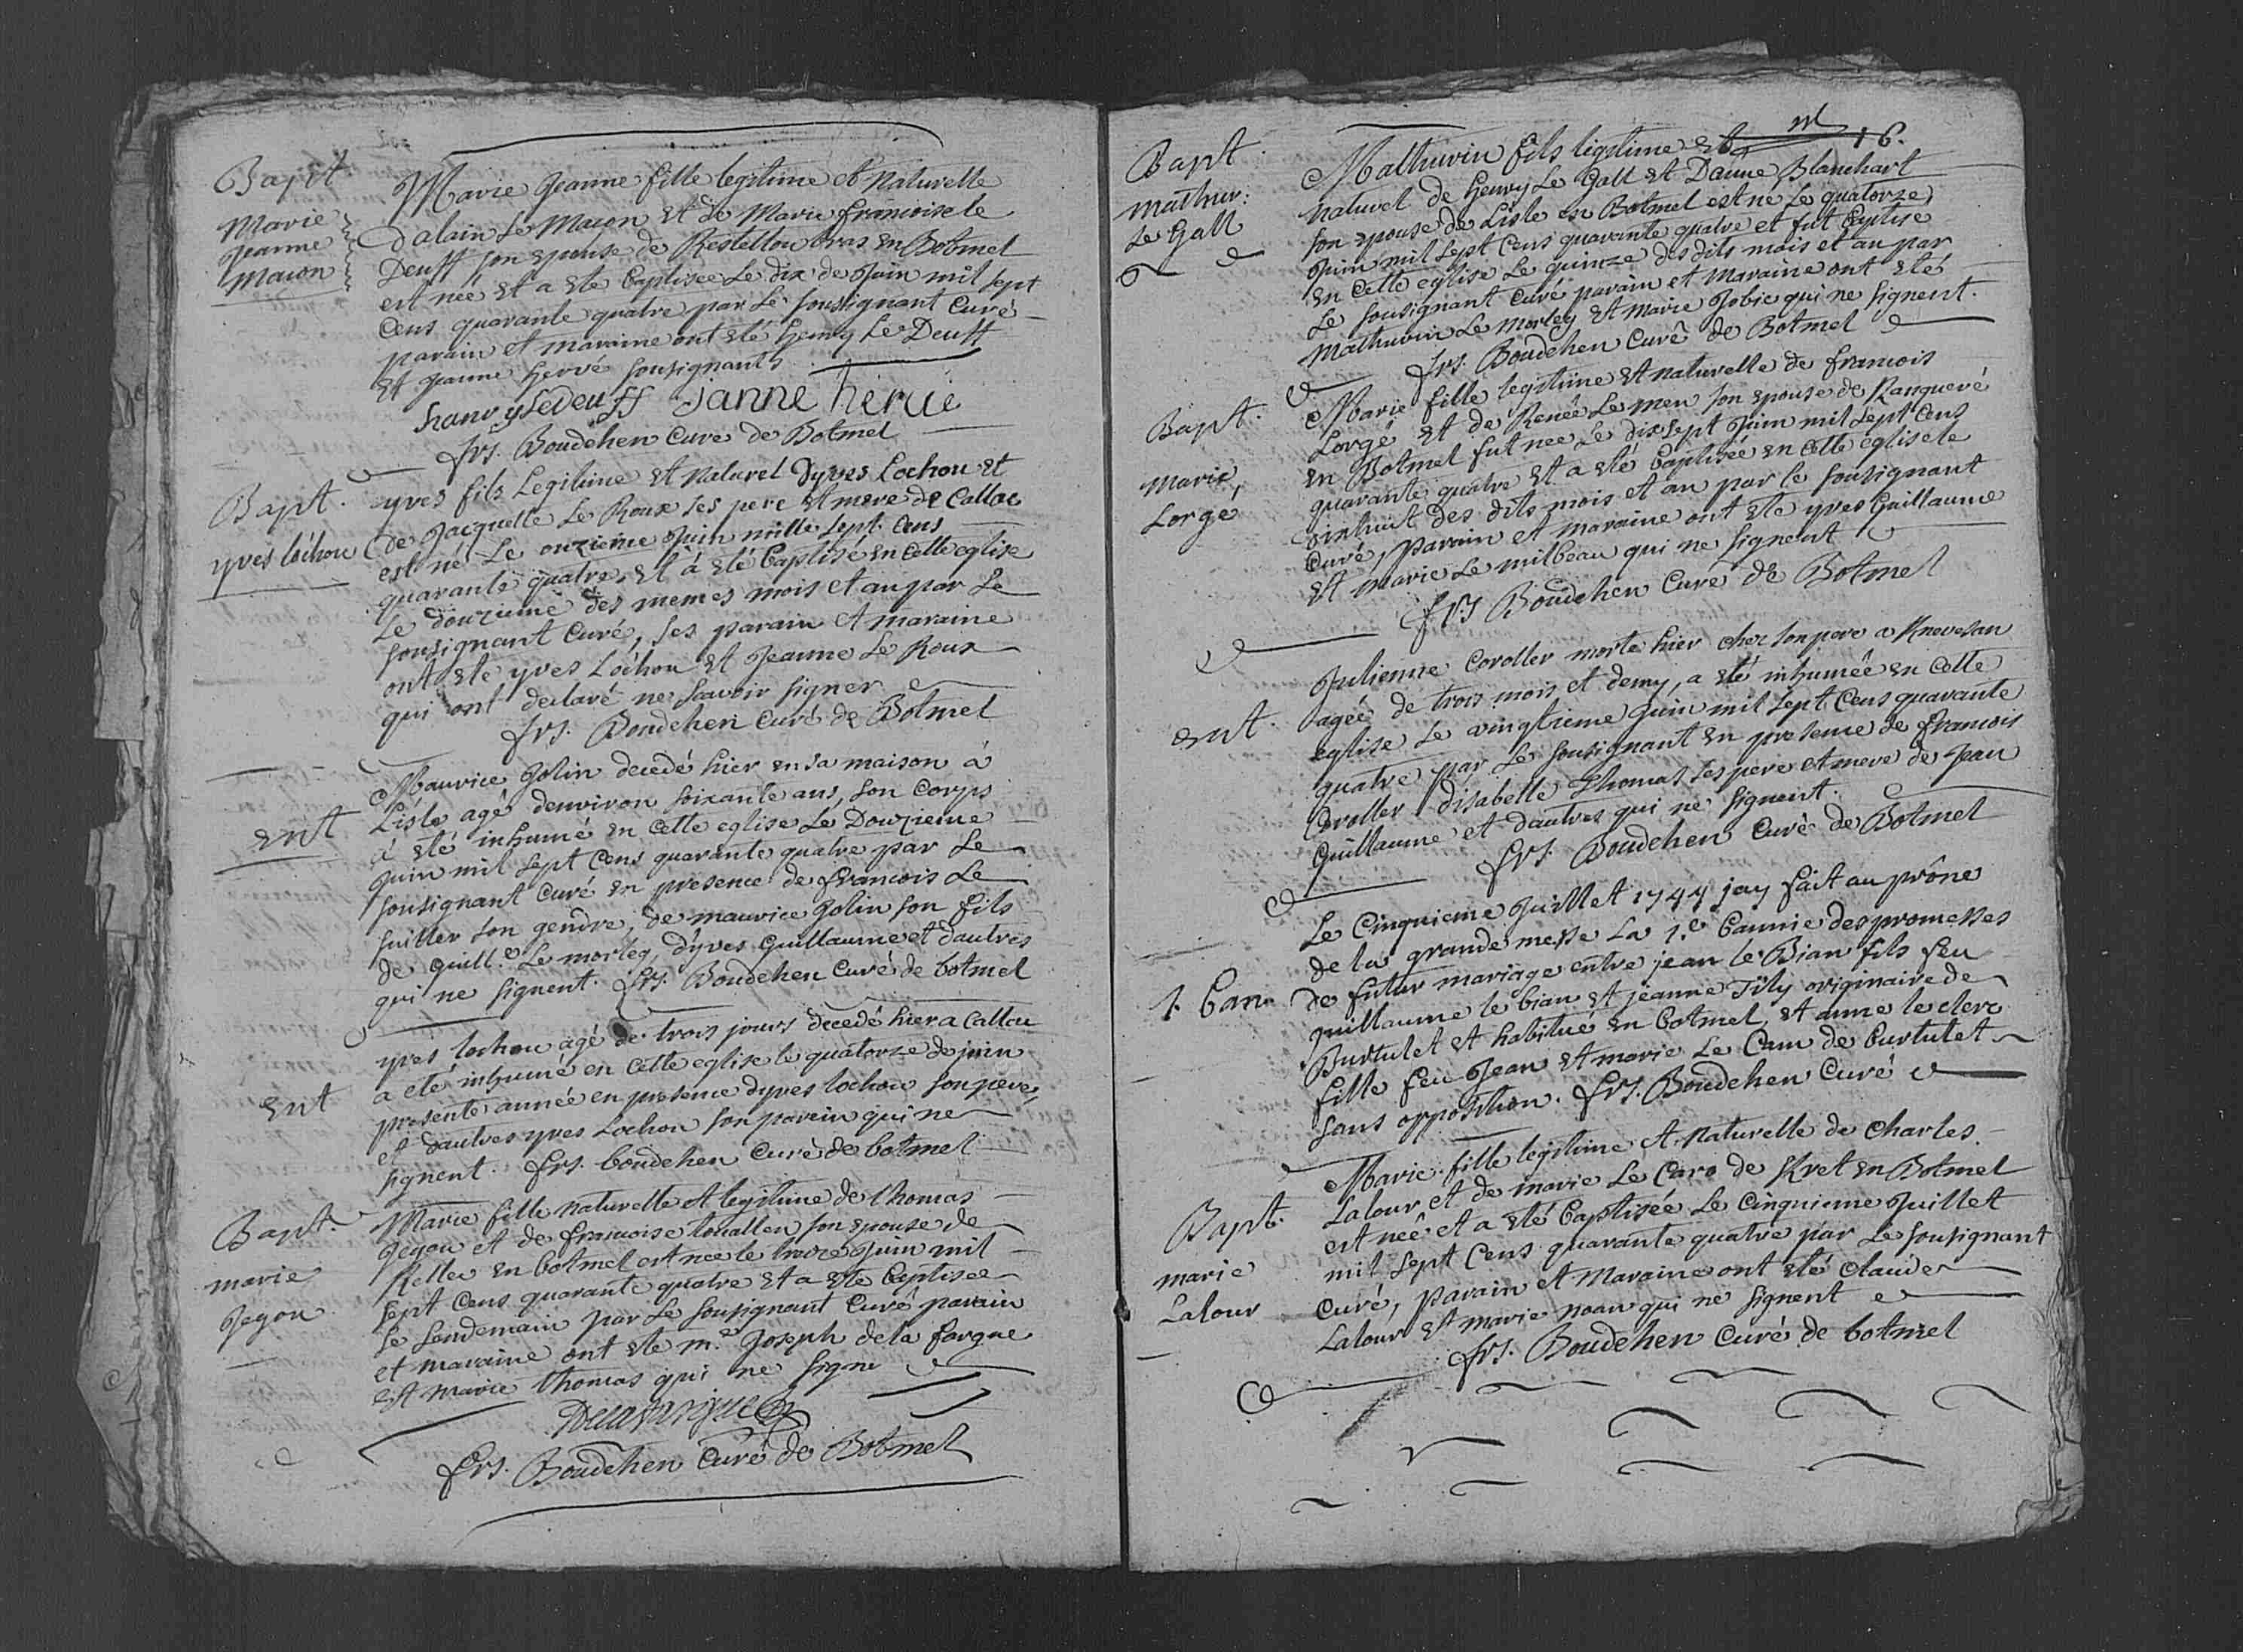 Bapt
Marie
Jeanne
Macon
Marie Jeanne fille legitime et Naturelle
Dalain Le Macon et de Marie francoise le
Deuff son epouse de Restellou bras en Botmel
est née et a ete baptisée Le dix de Juin mil sept
Cens quarante quatre par Le sousignant Curé
parain et maraine ont eté henry Le Deuff
et Jeanne hervé sousignants
hanry ledeuff janne hervé
frs. Boudehen Curé de Botmel
Bapt.
yves lochou
yves fils Legitime et Naturel Dyves Lochou et
de Jacquette Le Roux ses pere et mere de Callac
est né Le onzieme Juin mille sept Cens
quarante quatre, et à eté baptisé en cette eglise
Le douzieme des memes mois et an par Le
sousignant Curé, ses parain et maraine
ont ete yves Lochou et Jeanne Le Roux
qui ont declaré ne scavoir signer
frs. Boudehen Curé de Botmel
ent
Maurice Jolin decedé hier en sa maison à
Lisle agé denviron soixante ans, son Corps
à eté inhumé en cette eglise Le Douzieme
Juin mil sept Cens quarante quatre par Le
sousignant Curé en presence de francois Le
suiller son gendre, de maurice Jolin son fils
de Guill.e Le morleg, dyves Guillaume et dautres
qui ne signent. frs. Boudehen Curé de botmel
ent
yves lochou agé de trois jours decedé hier a Callac
a eté inhumé en cette eglise le quatorze de juin
presente année en presence dyves lochou son pere,
et dautres yves Lochou son parain qui ne
signent. frs. boudehen Curé de botmel
Bapt.
marie
Jegou
Marie fille naturelle et legitime de thomas
Jegou et de francoise son epouse de
en botmel est nee le treize Juin mil
sept Cens quarante quatre et a ete baptisée
le lendemain par Le sousignant Curé parain
et maraine ont ete m.e Joseph de la fargue
et marie thomas qui ne signe
Delafargue
frs. Boudehen Curé de Botmel
16.
Bapt
mathur:
Le Gall
Mathurin fils legitime et
naturel de henry Le Gall et Danne Blanchart
son epouse de Lisle en Botmel est né Le quatorze
Juin mil sept Cens quarante quatre et fut baptisé
en cette eglise Le quinze des dits mois et an par
Le sousignant Curé parain et maraine ont eté
Mathurin Le Morleg et Marie Jobic qui ne signent.
frs. Boudehen Curé de Botmel
Bapt.
Marie
Lorgé
Marie fille legitime et naturelle de francois
Lorgé et de Renée Le men son epouse de Ranquevé
en Botmel fut nee Le dix sept Juin mil sept Cens
quarante quatre et a eté baptisée en cette eglise le
dixhuit des dits mois et an par le sousignant
Curé, Parain et maraine ont ete yves Guillaume
et marie Le milbeau qui ne signent
frs Boudehen Curé de Botmel
ent.
Julienne Coroller morte hier chez son pere a Knevesan
ageé de trois mois et demy, a eté inhumée en cette
eglise Le vingtieme Juin mil sept Cens quarante
quatre par Le sousignant en presence de francois
Coroller disabelle Thomas ses pere et mere de Jean
Guillaume et dautres qui ne signent.
frs. Boudehen Curé de Botmel
1. ban
Le Cinquieme Juillet 1744 jay fait au prône
de la grande messe La 1.e bannie des promesses
de futur mariage entre jean le Bian fils feu
guillaume le bian et jeanne Tily originaire de
Burtulet et habitué en botmel, et anne le clerc
fille feu Jean et marie Le Cam de burtulet
sans opposition. frs. Boudehen Curé
Bapt.
marie
Lalour
Marie fille legitime et Naturelle de Charles
Lalour et de marie Le Caro de Kret en Botmel
est née et a eté baptisée Le Cinquieme Juillet
mil sept Cens quarante quatre par Le sousignant
Curé, Parain et Maraine ont eté Claude
Lalour et marie noan qui ne signent
frs. Boudehen Curé de botmel